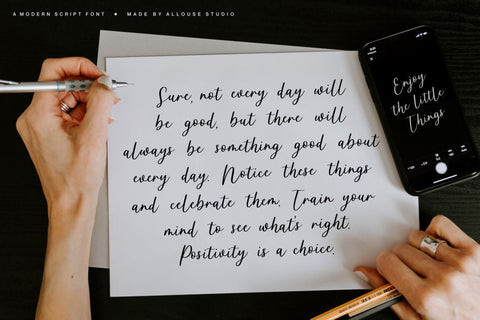 A MODERN SCRIPT FONT • MADE BY ALLOUSE STUDIO
Sure, not every day will
be good, but there will
always be something good about
every day. Notice these things
and celebrate them. Train your
mind to see what's right.
Positivity is a choice.
Enjoy
the little
Things